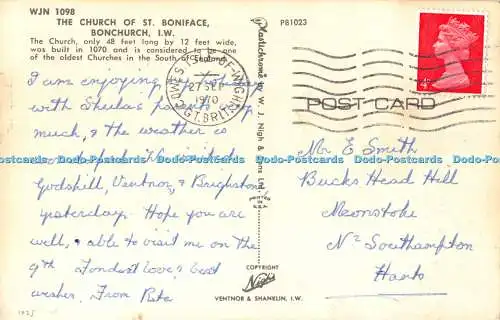 WJN 1098
THE CHURCH OF ST. BONIFACE,
BONCHURCH, I.W.
The Church, only 48 feet long by 12 feet wide,
was built in 1070 and is considered to be one
of the oldest Churches in the South of England.
I am enjoying my stay
with Sheila's parents very
much, & the weather is
Godshill, Ventnor & Brighstone
yesterday. Hope you are
well, & able to visit me on the
9th. Fondest love & best
wishes, From Rita
1023
Plastichrome by W. J. Nigh & Sons Ltd.
PRINTED IN U.S.A.
COPYRIGHT
Nigh
VENTNOR & SHANKLIN, I.W.
P81023
COWES
ISLE OF WIGHT
27 SEP
1970
GT. BRITAIN
4D
POST CARD
Mr E Smith
Bucks Head Hill
Meonstoke
Nr Southampton
Hants
Dodo-Postcards Dodo-Postcards Dodo-Postcards Dodo-Postcards Dodo-Postcards